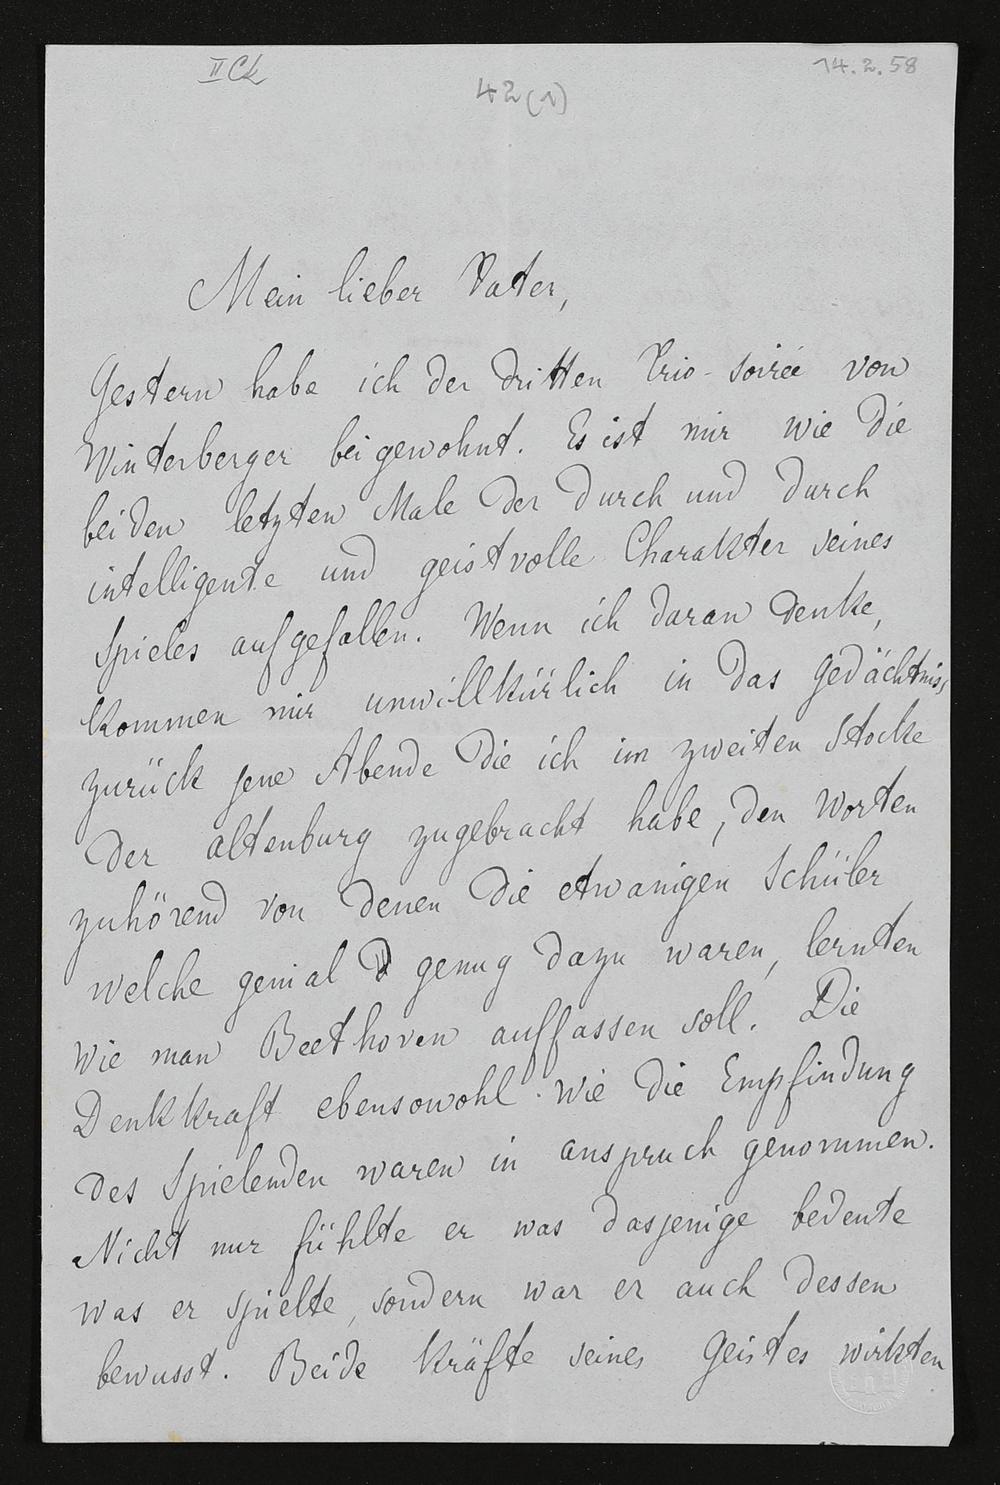 II Ck
42 (1)
14.2.58
Mein lieber Vater,
Gestern habe ich der dritten Trio-soirée von
Winterberger beigewohnt. Es ist mir wie die
beiden letzten Male der durch und durch
intelligente und geistvolle Charakter seines
Spieles aufgefallen. Wenn ich daran denke,
kommen mir unwillkürlich in das gedächtniss
zurück jene Abende die ich im zweiten Stocke
der altenburg zugebracht habe, den Worten
zuhörend von denen die etwanigen Schüler
welche genial genug dazu waren, lernten
wie man Beethoven auffassen soll. Die
Denkkraft ebensowohl wie die Empfindung
des Spielenden waren in anspruch genommen.
Nicht nur fühlte er was dasjenige bedeute
was er spielte, sondern war er auch dessen
bewusst. Beide kräfte seines Geistes wirkten